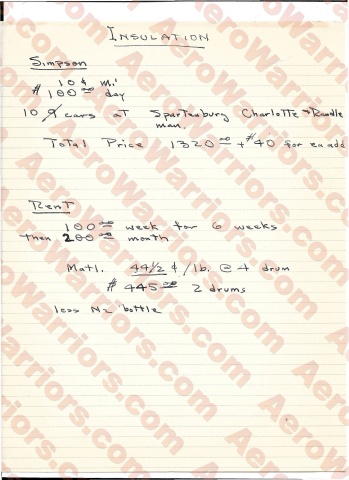 INSULATION
Simpson
10¢ mi.
$100.00 day
10 cars at Spartanburg Charlotte &
man.
Total Price 1320.00 + $40 for ea add
Rent
100.00 week for 6 weeks
then 200.00 month
Matl. 44 1/2 ¢/lb. @ 4 drum
$445.00 2 drums
less N2 bottle
AeroWarriors.com